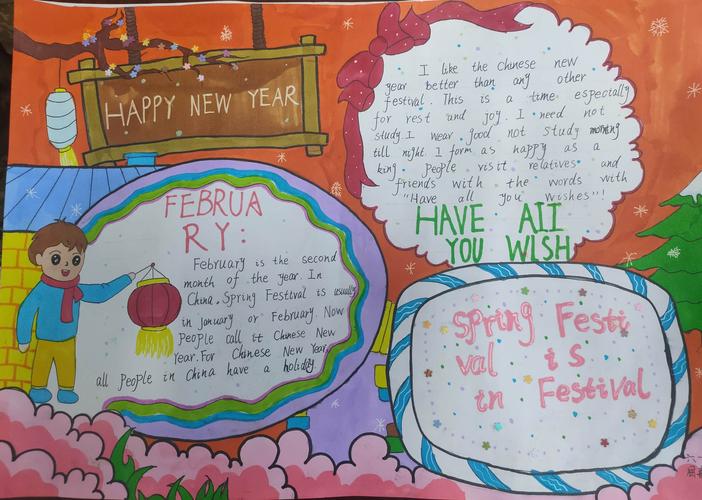 HAPPY NEW YEAR
I like the Chinese new
year better than any other
festival. This is a time especially
for rest and joy. I need not
study.I wear good not study morning
till night. I form as happy as a
king. People visit relatives and
friends with the words with
"Have all you wishes"!
HAVE All
YOU WISH
FEBRUA
RY:
February is the second
month of the year. In
China, Spring Festival is usually
in january or February. Now
People call it Chinese New
Year. For Chinese New Year,
all People in China have a holiday.
Spring Festi
val is
in Festival